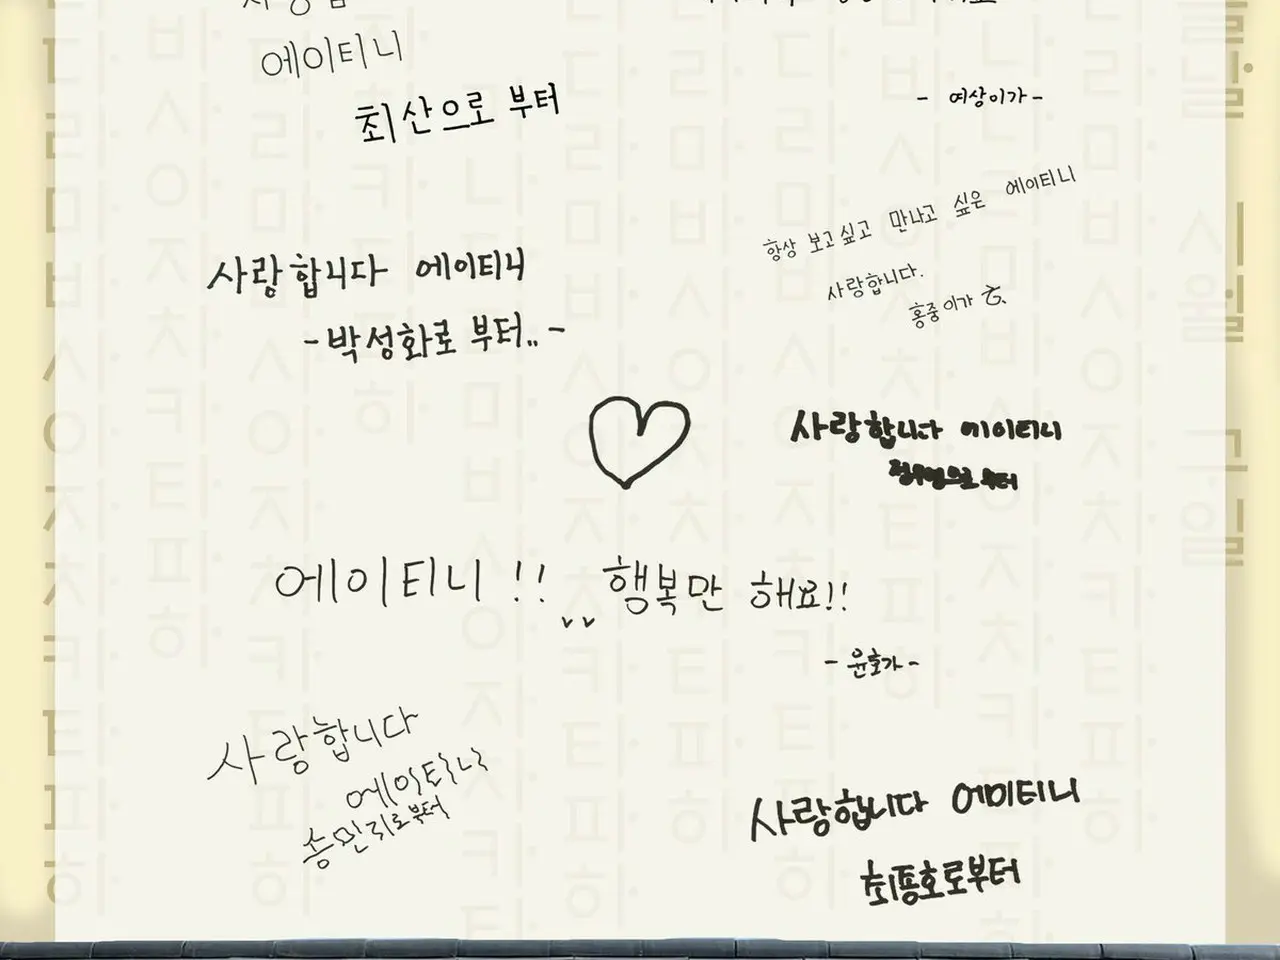 에이티니
최산으로 부터
- 여상이가 -
항상 보고싶고 만나고 싶은 에이티니
사랑합니다.
홍중이가
사랑합니다 에이티니
- 박성화로 부터.. -
사랑합니다 에이티니
정우영으로 부터
에이티니 !! 행복만 해요!!
- 윤호가 -
사랑합니다
에이티니
송민기로부터
사랑합니다 에이티니
최종호로부터